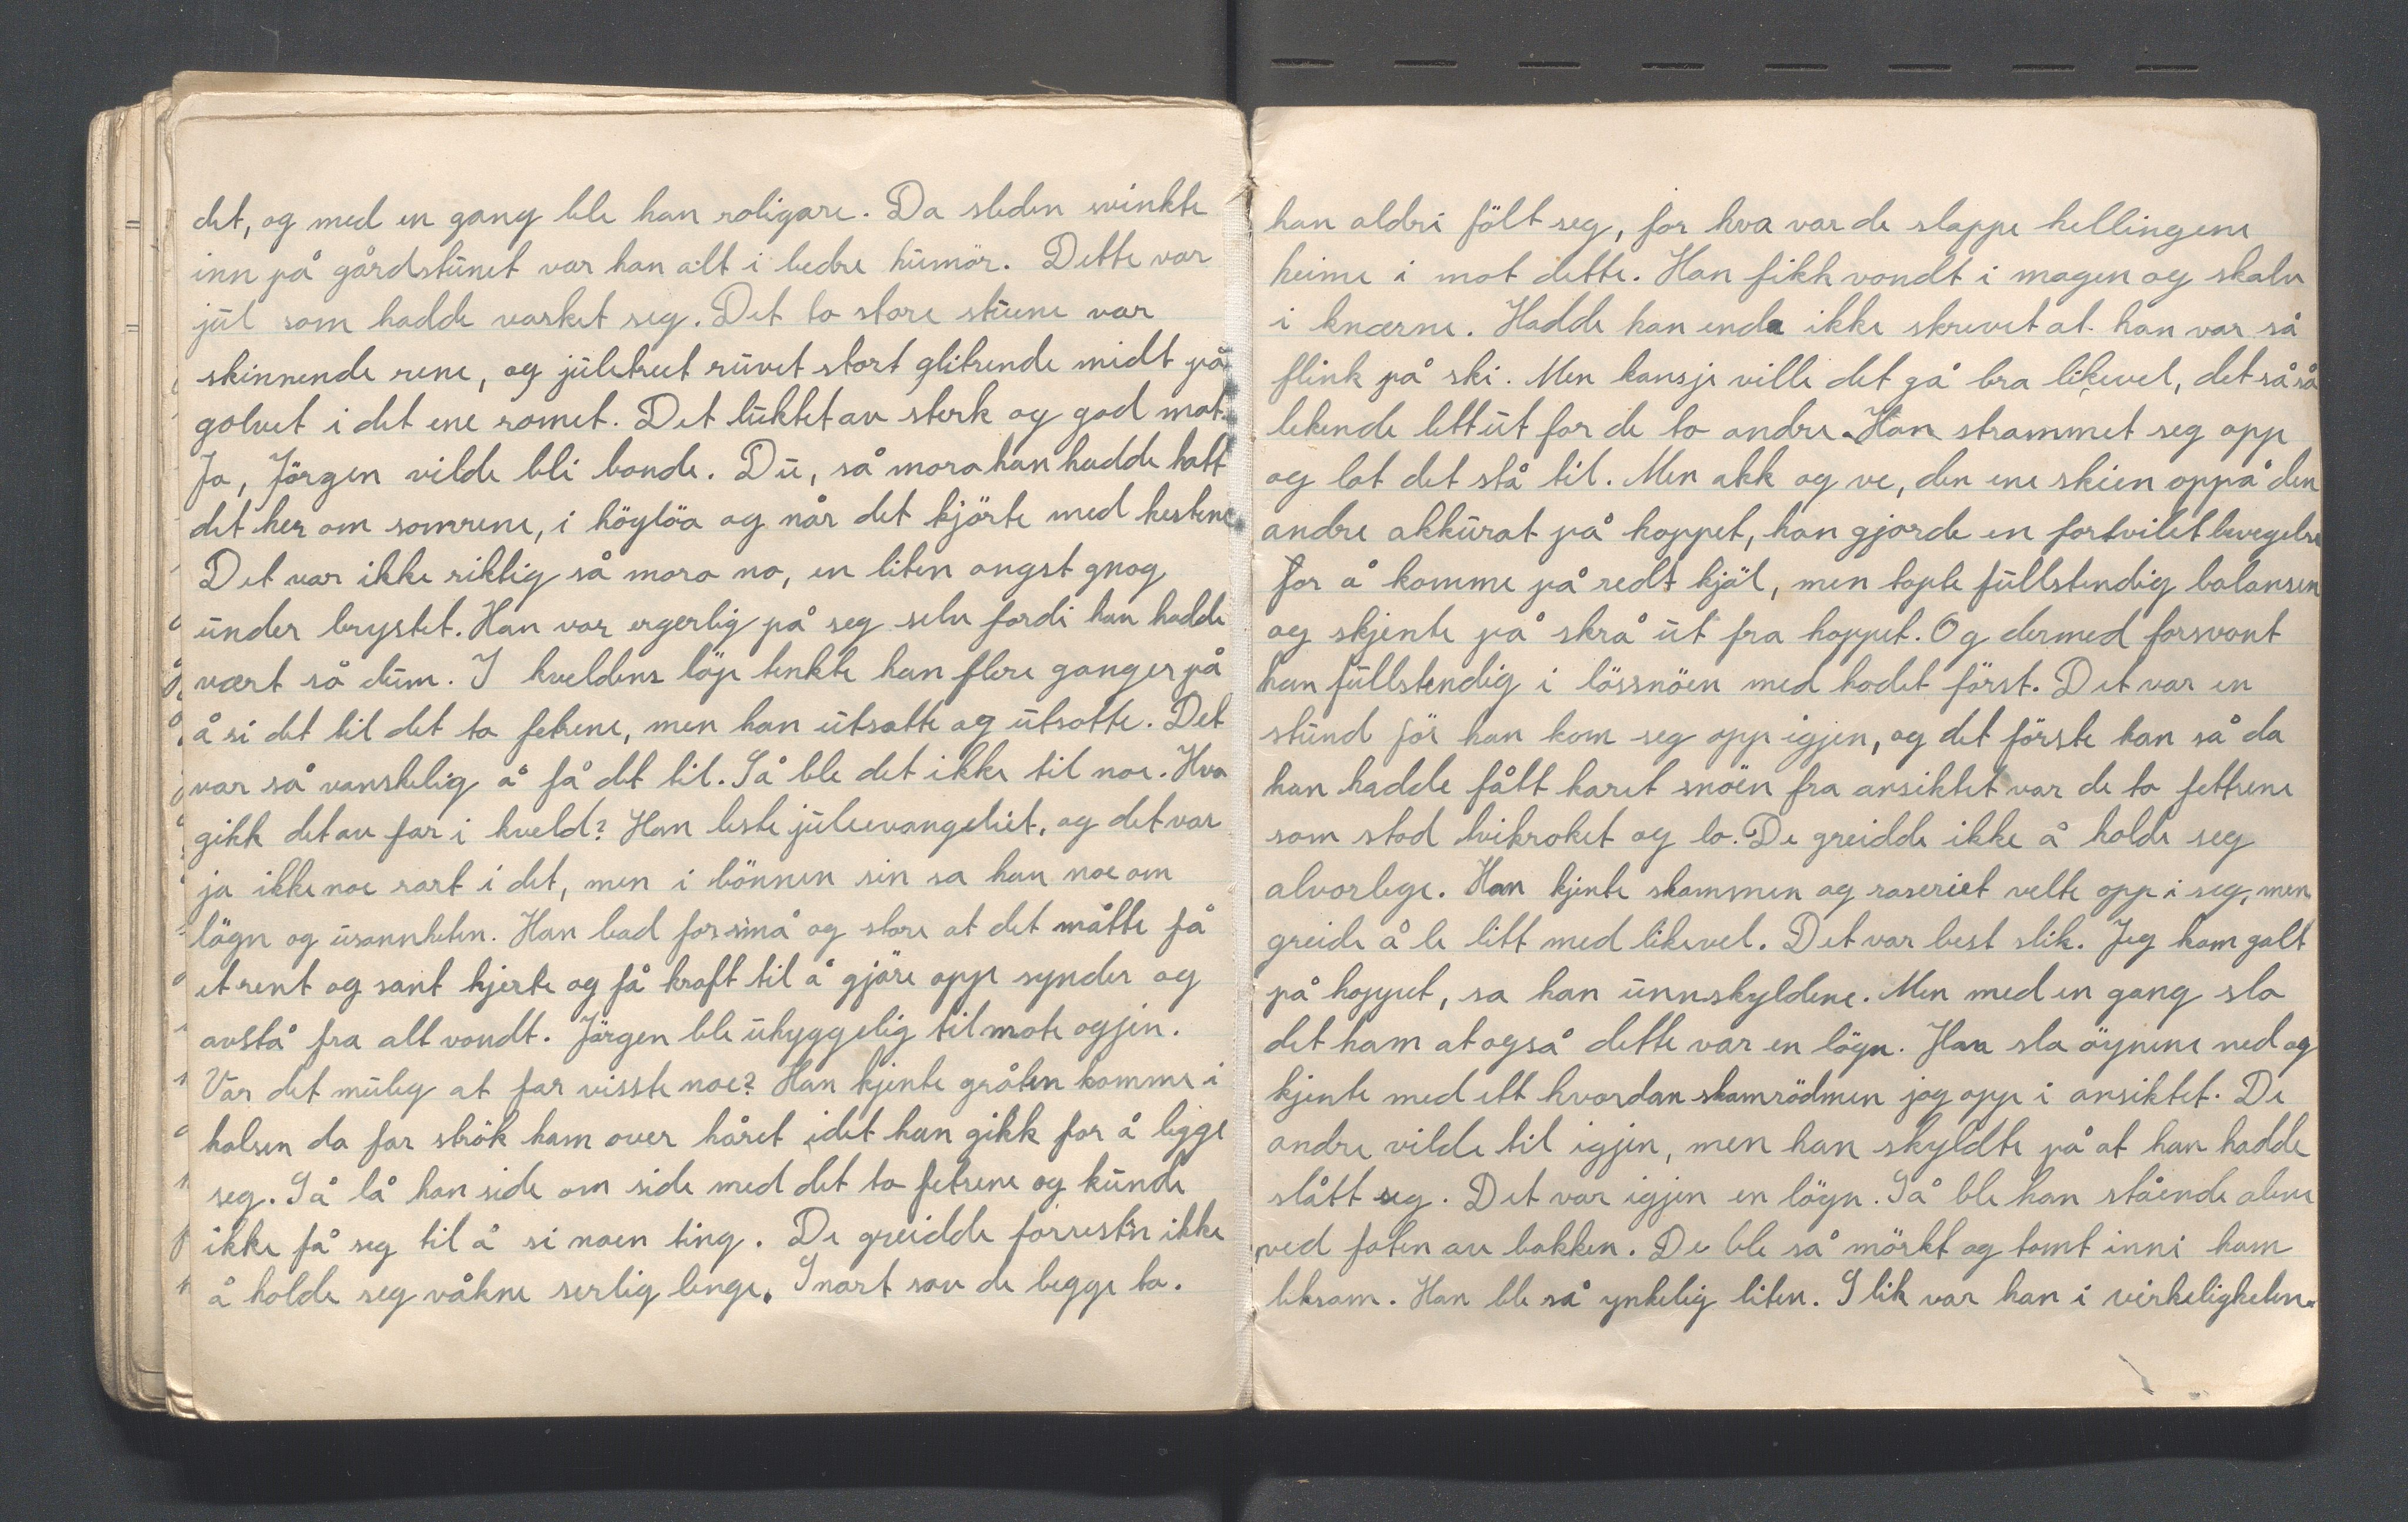 det, og med en gang ble han roligare. Da sleden svinkte
inn på gårdstunet var han alt i bedre humör. Dette var
jul som hadde vasket seg. Det to store stuene var
skinnende rene, og juletreet ruvet stort glitrende midt på
golvet i det ene romet. Det luktet av sterk og god mat.
Ja, Jörgen vilde bli bonde. Du, så mora han hadde hatt
det her om somrene, i höylöa og når det kjörte med hestene
Det var ikke riktig så mora no, en liten angst gnog
under brystet. Han var ergerlig på seg selv fordi han hadde
vært så dum. I kveldens löp tenkte han flere ganger på
å si det til det to fetrene, men han utsatte og utsatte. Det
var så vanskelig å få det til. Så ble det ikke til noe. Hva
gikk det av far i kveld? Han leste juleevangeliet, og det var
ja ikke noe rart i det, men i bönnen sin sa han noe om
lögn og usannheten. Han bad for små og store at det måtte få
et rent og sant hjerte og få kraft til å gjöre opp synder og
avstå fra alt vondt. Jörgen ble uhyggelig til mote ogjen.
Var det muleg at far visste noe? Han kjente gråten komme i
halsen da far strök ham over håret idet han gikk for å legge
seg. Så lå han side om side med det to fetrene og kunde
ikke få seg til å si noen ting. De greidde forresten ikke
å holde seg våkne serlig lenge. Snart sov de begge to.
han aldri fölt seg, for hva var de slappe hellingene
heime i mot dette. Han fikk vondt i magen og skalv
i knærne. Hadde han enda ikke skrevet at han var så
flink på ski. Men kansje ville det gå bra likevel, det så så
lekende lett ut for de to andre. Han strammet seg opp
og lot det stå til. Men akk og ve, den ene skien oppå den
andre akkurat på hoppet, han gjorde en fortvilet bevegelse
for å komme på rett kjöl, men tapte fullstendig balansen
og skjente på skrå ut fra hoppet. Og dermed forsvant
han fullstendig i lössnöen med hodet först. Det var en
stund för han kom seg opp igjen, og det förste han så da
han hadde fått karet snöen fra ansiktet var de to fettrene
som stod tvikroket og lo. De greidde ikke å holde seg
alvorlege. Han kjente skammen og raseriet velte opp i seg, men
greide å le litt med likevel. Det var best slik. Jeg kom galt
på hoppet, sa han unnskyldene. Men med en gang sla
det ham at også dette var en lögn. Han sla öynene ned og
kjente med ett hvordan skamrödmen jog opp i ansiktet. De
andre vilde til igjen, men han skyldte på at han hadde
slått seg. Det var igjen en lögn. Så ble han stående alene
ved foten av bakken. De ble så mörkt og tomt inni ham
leksom. Han ble så ynkelig liten. Slik var han i virkeligheten.